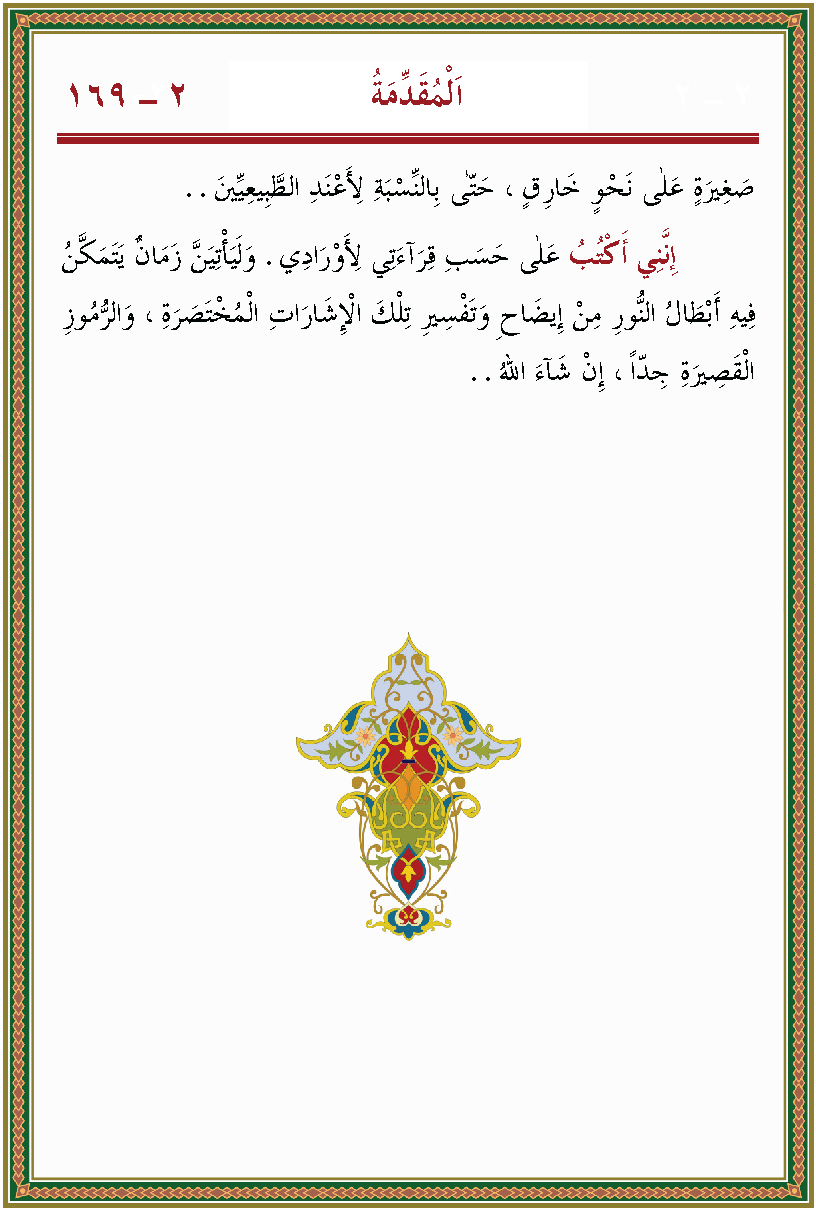 اَلْمُقَدِّمَةُ ٢ – ١٦٩
صَغِيرَةٍ عَلٰى نَحْوٍ خَارِقٍ ، حَتّٰى بِالنِّسْبَةِ لِأَعْنَدِ الطَّبِيعِيِّينَ . .
إِنَّنِي أَكْتُبُ عَلٰى حَسَبِ قِرَآءَتِي لِأَوْرَادِي . وَلَيَأْتِيَنَّ زَمَانٌ يَتَمَكَّنُ
فِيهِ أَبْطَالُ النُّورِ مِنْ إِيضَاحِ وَتَفْسِيرِ تِلْكَ الْإِشَارَاتِ الْمُخْتَصَرَةِ ، وَالرُّمُوزِ
الْقَصِيرَةِ جِدّاً ، إِنْ شَآءَ اللهُ . .